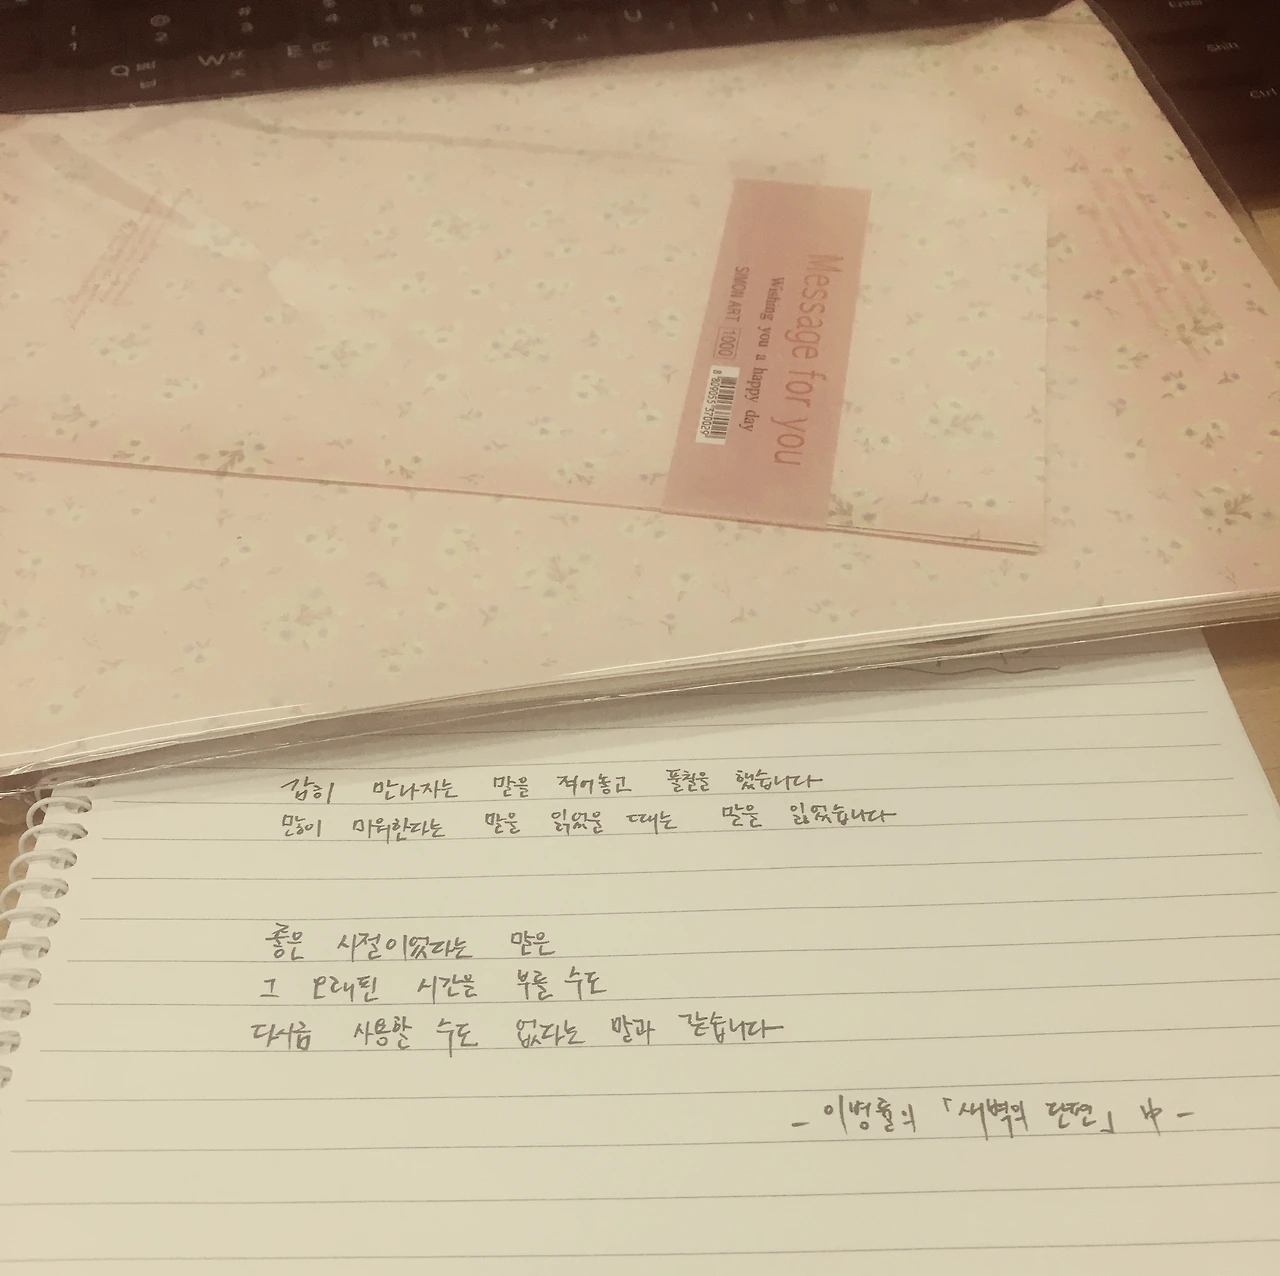 ! 1
@ 2
# 3
$ 4
Q ㅃ ㅂ
W ㅉ ㅈ
E ㄸ ㄷ
R ㄲ ㄱ
T ㅅ
Y
U
Enter
Shift
Ctrl
Message for you
Wishing you a happy day
SIMON ART 1000
8 809055 370029
감히 만나자는 말을 적어놓고 풀칠을 했습니다
많이 미워한다는 말을 읽었을 때는 말을 잃었습니다
좋은 시절이었다는 말은
그 오래핀 시간을 부를 수도
다시금 사용할 수도 없다는 말과 같습니다
- 이병률의 「새벽의 단편」 中 -